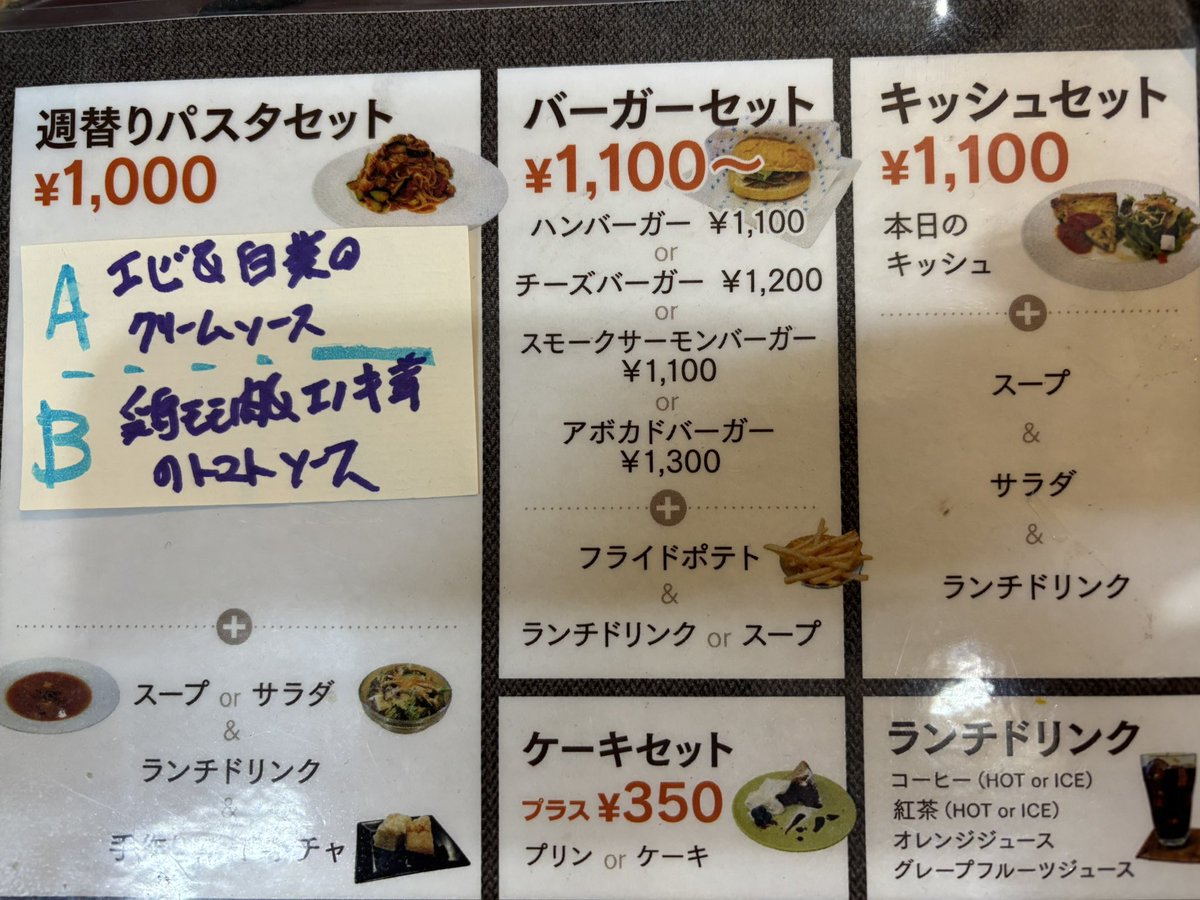 週替りパスタセット
¥1,000
A エビ&白菜の
クリームソース
B 鶏モモ肉&エノキ茸
のトマトソース
スープ or サラダ
&
ランチドリンク
&
チャ
バーガーセット
¥1,100〜
ハンバーガー ¥1,100
or
チーズバーガー ¥1,200
or
スモークサーモンバーガー
¥1,100
or
アボカドバーガー
¥1,300
+
フライドポテト
&
ランチドリンク or スープ
キッシュセット
¥1,100
本日の
キッシュ
+
スープ
&
サラダ
&
ランチドリンク
ケーキセット
プラス ¥350
プリン or ケーキ
ランチドリンク
コーヒー (HOT or ICE)
紅茶 (HOT or ICE)
オレンジジュース
グレープフルーツジュース